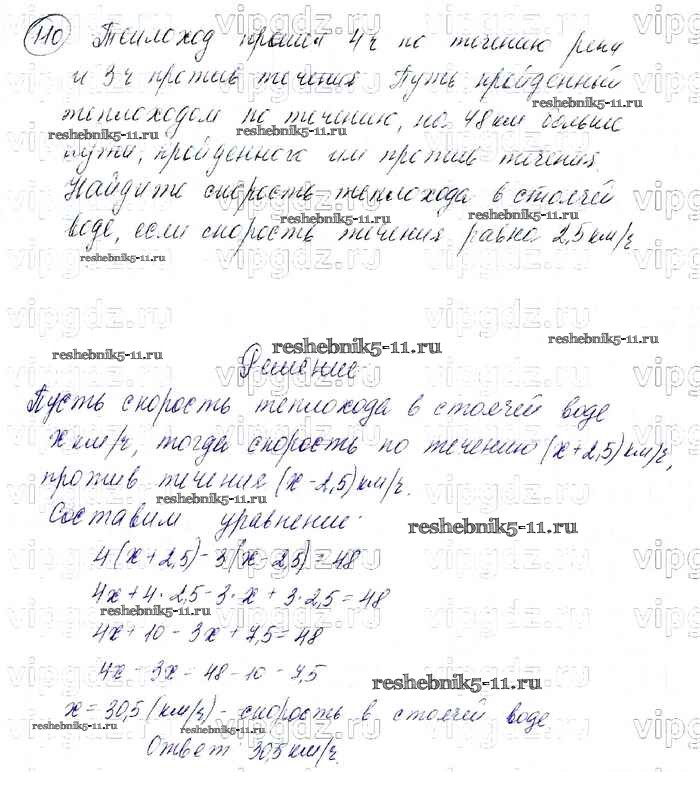 110 Теплоход прошел 4ч по течению реки
и 3ч против течения. Путь, пройденный
теплоходом по течению, на 48км больше
пути, пройденного им против течения.
Найдите скорость теплохода в стоячей
воде, если скорость течения равна 2,5км/ч
Решение
Пусть скорость теплохода в стоячей воде
х км/ч, тогда скорость по течению (х+2,5)км/ч,
против течения (х-2,5)км/ч.
Составим уравнение:
4(х+2,5)-3(х-2,5)=48
4х+4·2,5-3·х+3·2,5=48
4х+10-3х+7,5=48
4х-3х=48-10-7,5
х=30,5(км/ч)- скорость в стоячей воде
Ответ 30,5км/ч.
vipgdz.ru
reshebnik5-11.ru